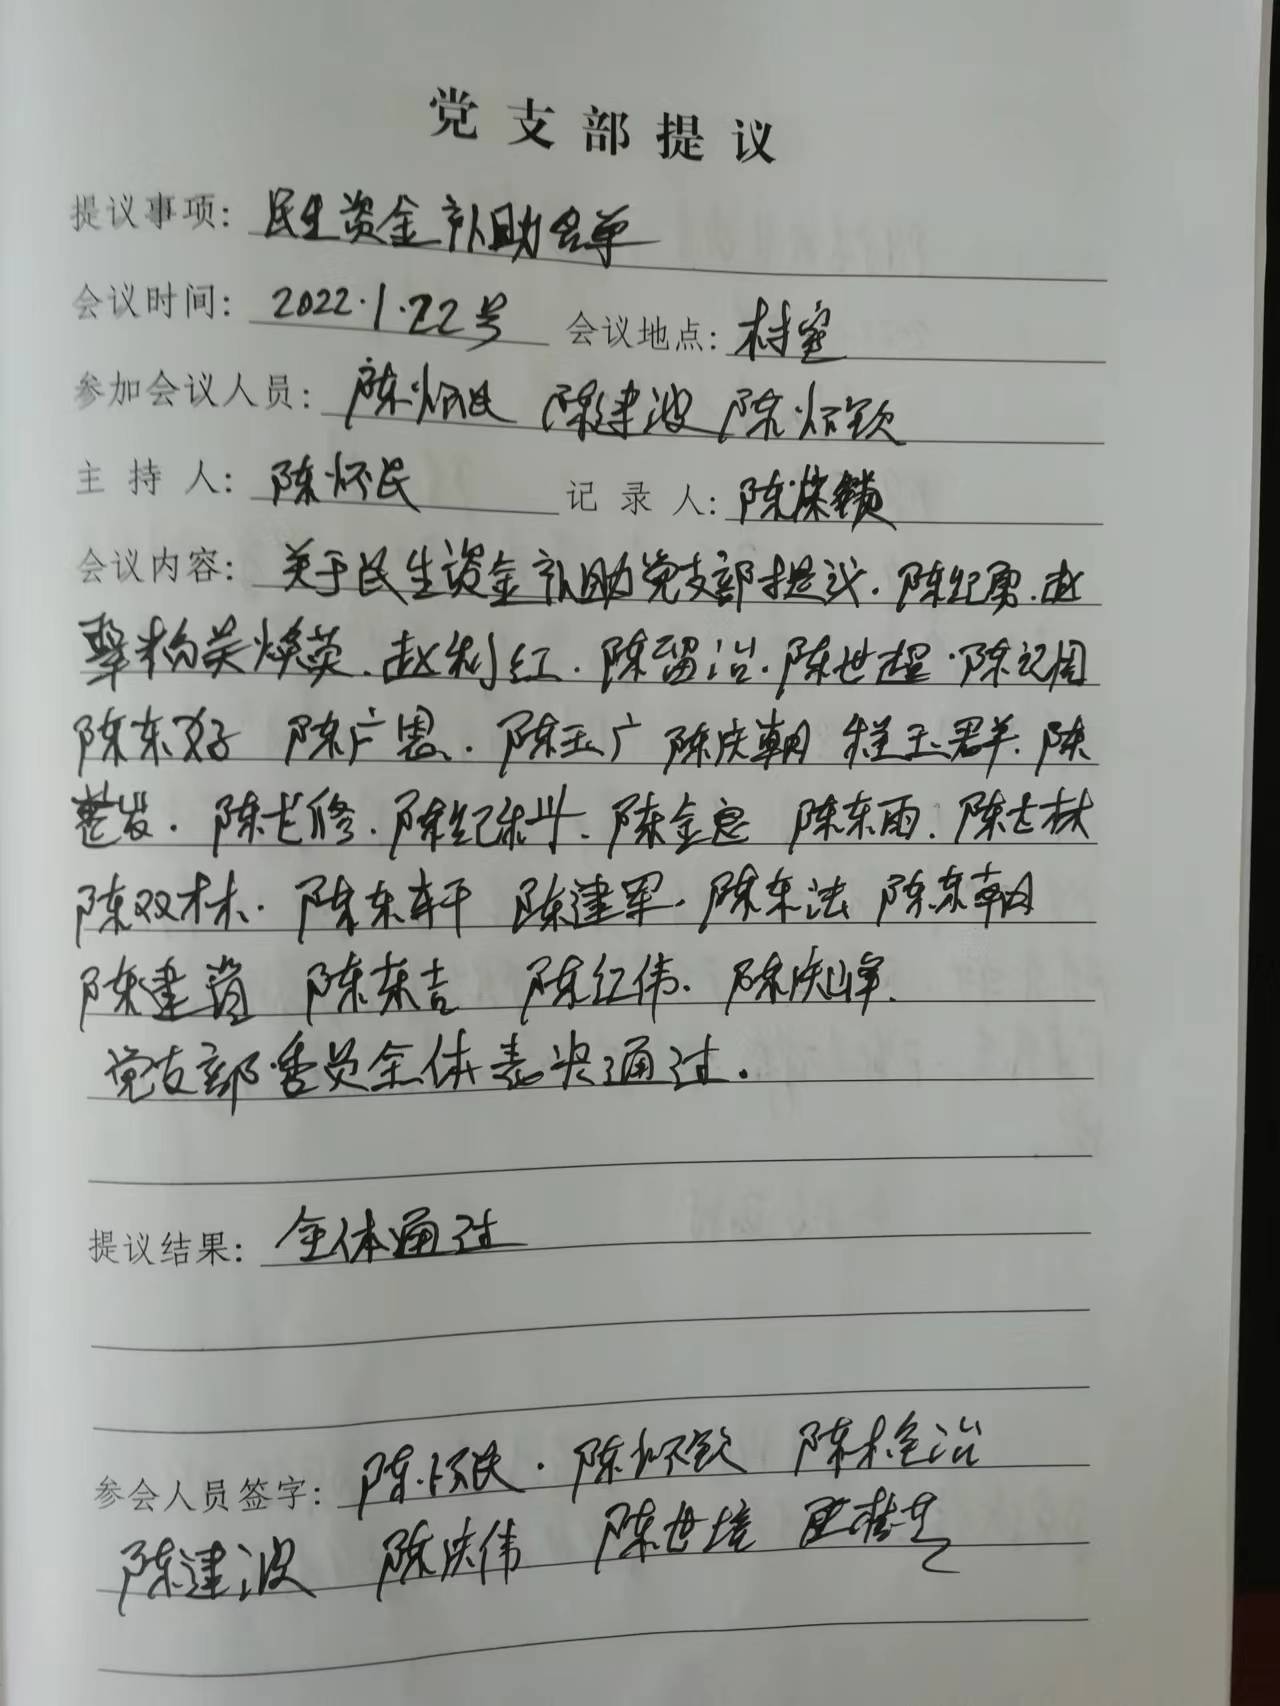 党支部提议
提议事项: 民生资金补助名单
会议时间: 2022.1.22号 会议地点: 村室
参加会议人员: 陈怀民 陈建波 陈怀钦
主持人: 陈怀民 记录人: 陈荣锁
会议内容: 关于民生资金补助党支部提议. 陈纪勇. 赵
粉 焕英. 赵利红. 陈留治. 陈世超. 陈纪周
陈东好 陈广恩. 陈玉广 陈庆朝 程玉群. 陈
发. 陈长修. 陈纪兴. 陈金忠 陈东雨. 陈长林
陈双林. 陈东轩 陈建军. 陈东法 陈东朝
陈建 陈东吉 陈红伟. 陈庆峰.
党支部委员全体表决通过.
提议结果: 全体通过
参会人员签字: 陈怀民. 陈怀钦 陈栓治
陈建波 陈庆伟 陈世培